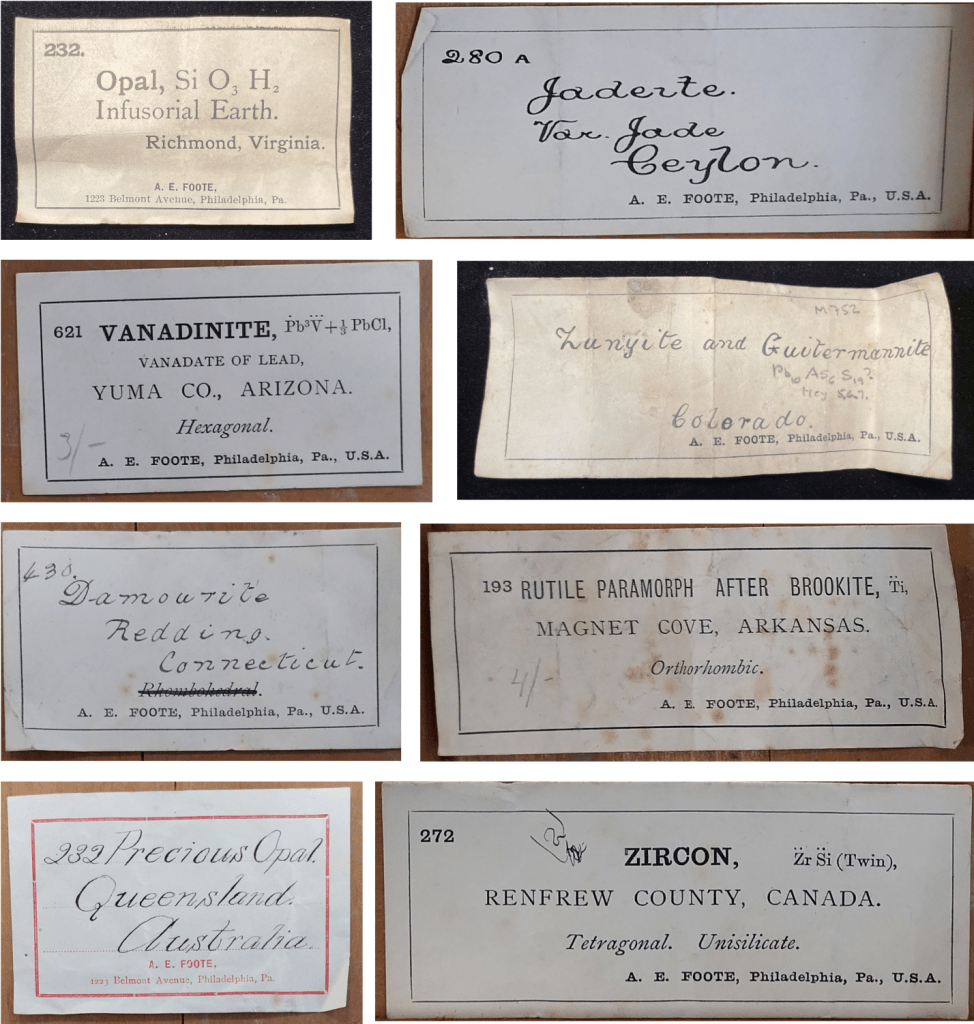 232.
Opal, Si O3 H2
Infusorial Earth.
Richmond, Virginia.
A. E. FOOTE,
1223 Belmont Avenue, Philadelphia, Pa.
280 A
Jadeite.
Var. Jade
Ceylon.
A. E. FOOTE, Philadelphia, Pa., U.S.A.
621 VANADINITE, Ṗb³V⃛+⅓PbCl,
VANADATE OF LEAD,
YUMA CO., ARIZONA.
Hexagonal.
3/-
A. E. FOOTE, Philadelphia, Pa., U.S.A.
M752
Zunyite and Guitermannite
Pb10 As6 S19?
Hey
Colorado.
A. E. FOOTE, Philadelphia, Pa., U.S.A.
430.
Damourite
Redding.
Connecticut.
Rhombohedral.
A. E. FOOTE, Philadelphia, Pa., U.S.A.
193 RUTILE PARAMORPH AFTER BROOKITE, T̈i,
MAGNET COVE, ARKANSAS.
Orthorhombic.
4/-
A. E. FOOTE, Philadelphia, Pa., U.S.A.
232 Precious Opal.
Queensland.
Australia.
A. E. FOOTE,
1223 Belmont Avenue, Philadelphia, Pa.
272
ZIRCON, Z̈r S̈i (Twin),
RENFREW COUNTY, CANADA.
Tetragonal. Unisilicate.
A. E. FOOTE, Philadelphia, Pa., U.S.A.